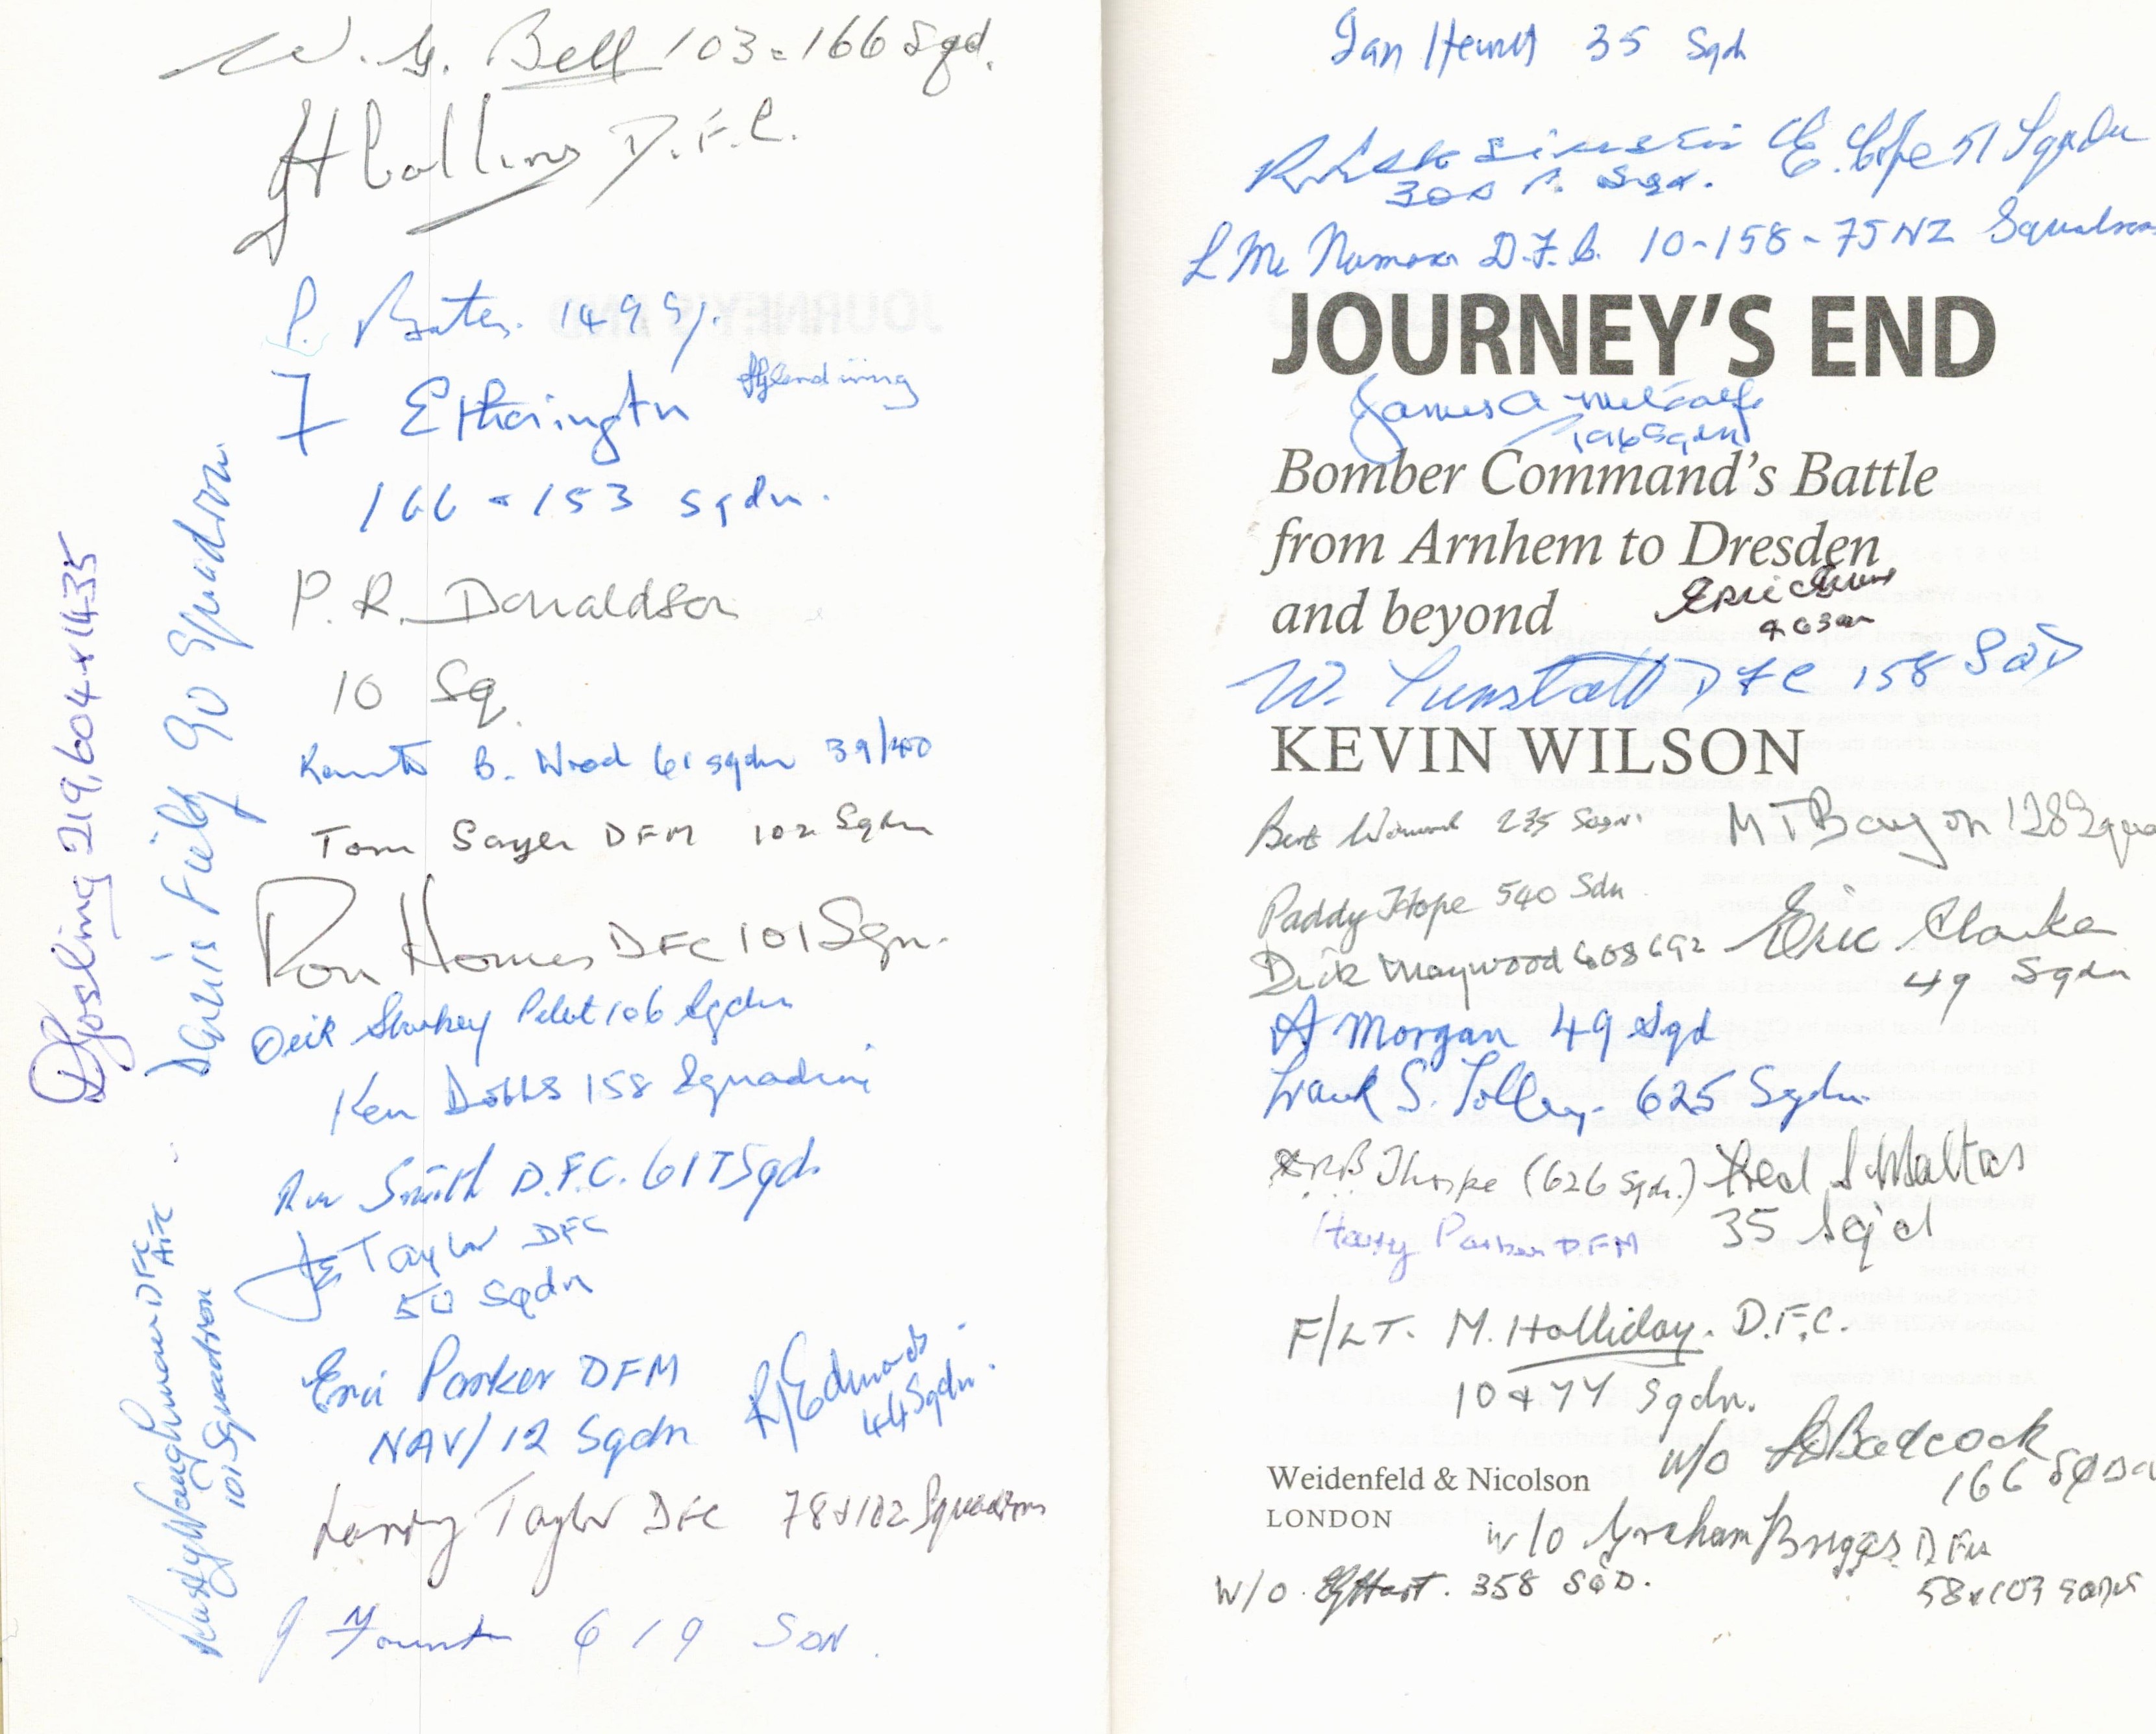 W. G. Bell 103 = 166 Sqd.
Collins D.F.C.
P. Bates. 149 Sq.
F Etherington
166 - 153 Sqdn.
P. R. Donaldson
10 Sq.
B. Wood 61 Sqdn 39/40
Tom Sayer DFM 102 Sqdn
Ron Homes DFC 101 Sqn.
Dick Starkey Pilot 106 Sqdn
Ken Dobbs 158 Squadron
Smith D.F.C. 617 Sqdn
Taylor DFC
50 Sqdn
Eric Parker DFM
NAV/12 Sqdn
Edmonds
44 Sqdn.
Larry Taylor DFC 78 & 102 Squadrons
J 619 SDN.
Gosling 219, 604 & 1435
Denis Field 90 Squadron.
Rusty Waughman DFC AFC
101 Squadron
Ian Hewitt 35 Sqdn
E. Cope 51 Sqdn
D.F.C. 10-158-75 NZ Squadrons
JOURNEY'S END
James A Metcalfe
196 Sqdn
Bomber Command's Battle
from Arnhem to Dresden
and beyond
Eric
W. Tunstall DFC 158 SQD
KEVIN WILSON
Bert 235 Sqdn.
M T Bayon 128 Squa
Paddy Hope 540 Sdn
Dick Maywood 608 692
Eric Clarke
49 Sqdn
A Morgan 49 Sqd
Frank S. Tolley. 625 Sqdn.
RB Thorpe (626 Sqn.)
Fred S Maltas
35 Sq'd
Harry Parker DFM
F/LT. M. Holliday. D.F.C.
10 & 77 Sqdn.
W/O Badcock
166 SQDN
Weidenfeld & Nicolson
LONDON
W/O Graham Briggs DFM
58 & 103 SQDNS
W/O. Hart. 358 SQD.